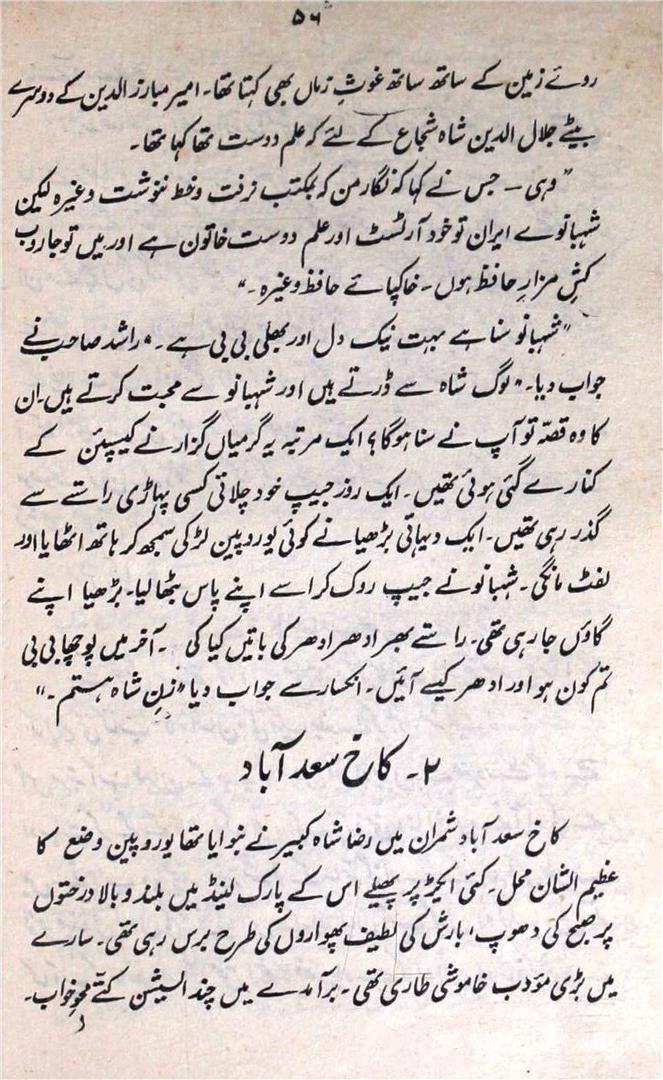 ۵۶
روئے زمین کے ساتھ ساتھ غوثِ زماں بھی کہتا تھا۔ امیر مبارز الدین کے دوسرے
بیٹے جلال الدین شاہ شجاع کے لئے کہ علم دوست تھا کہا تھا۔
"وہی — جس نے کہا کہ نگار من کہ بمکتب نرفت و خط ننوشت وغیرہ لیکن
شہبانوے ایران تو خود آرٹسٹ اور علم دوست خاتون ہے اور میں تو جاروب
کشِ مزارِ حافظ ہوں۔ خاکپائے حافظ وغیرہ۔"
"شہبانو سنا ہے بہت نیک دل اور بھلی بی بی ہے۔" راشد صاحب نے
جواب دیا۔ "لوگ شاہ سے ڈرتے ہیں اور شہبانو سے محبت کرتے ہیں۔ ان
کا وہ قصّہ تو آپ نے سنا ہوگا؟ ایک مرتبہ یہ گرمیاں گزارنے کیسپئن کے
کنارے گئی ہوئی تھیں۔ ایک روز جیپ خود چلاتی کسی پہاڑی راستے سے
گذر رہی تھیں۔ ایک دیہاتی بڑھیا نے کوئی یوروپین لڑکی سمجھ کر ہاتھ اٹھایا اور
لفٹ مانگی۔ شہبانو نے جیپ روک کر اسے اپنے پاس بٹھا لیا۔ بڑھیا اپنے
گاؤں جا رہی تھی۔ راستے بھر ادھر ادھر کی باتیں کیا کی۔ آخر میں پوچھا بی بی
تم کون ہو اور ادھر کیسے آئیں۔ انکسار سے جواب دیا "زنِ شاہ ہستم۔"
۲۔ کاخ سعد آباد
کاخ سعد آباد شمران میں رضا شاہ کبیر نے بنوایا تھا یوروپین وضع کا
عظیم الشان محل۔ کئی ایکڑ پر پھیلے اس کے پارک لینڈ میں بلند و بالا درختوں
پر صبح کی دھوپ، بارش کی لطیف پھواروں کی طرح برس رہی تھی۔ سارے
میں بڑی مؤدب خاموشی طاری تھی۔ برآمدے میں چند السیشن کتے محوِ خواب۔